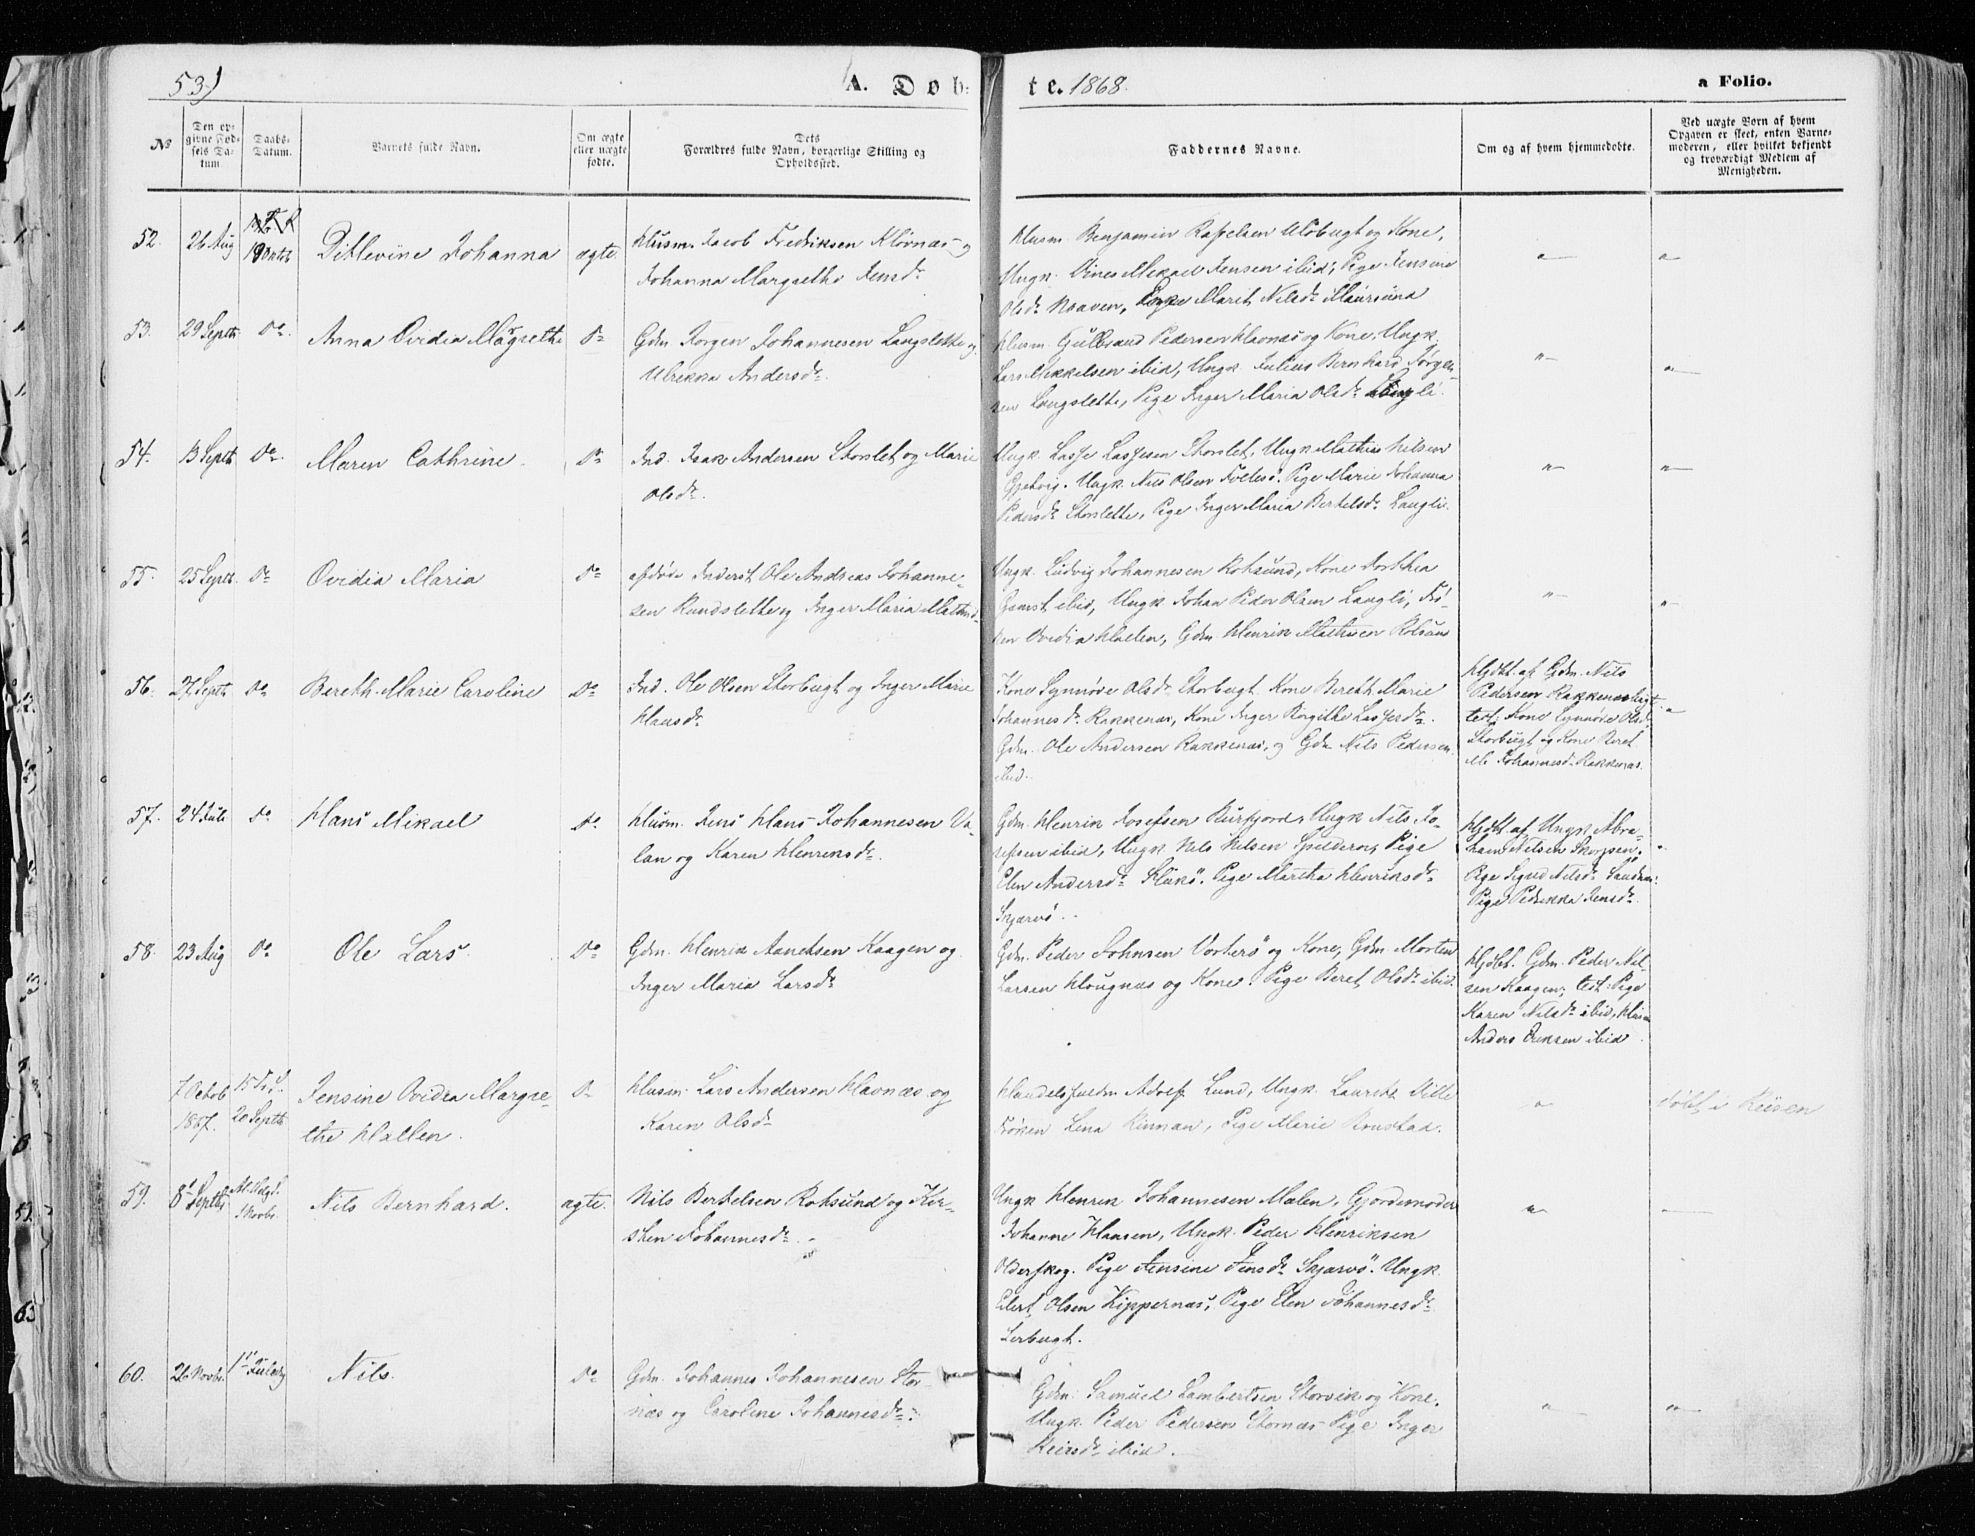 53)
A. Døb-
te. 1868.
a Folio.
No
Den op-
givne Fød-
sels Da-
tum.
Daabs-
Datum.
Barnets fulde Navn.
Om ægte
eller uægte
fødte.
Dets
Forældres fulde Navn, borgerlige Stilling og
Opholdssted.
Faddernes Navne.
Om og af hvem hjemmedøbte.
Ved uægte Børn af hvem
Opgaven er skeet, enten Barne-
moderen, eller hvilket bekjendt
og troværdigt Medlem af
Menigheden.
52. 26 Aug Ditlevine Johanna ægte
Husm. Jacob Fredriksen Klövnæs og
Johanna Margrethe Jensdr
Husm. Benjamin Rasselsen Uløbugt og Kone,
Ungk. Mikael Jensen ibid; Pige Jensine
Olsdr Pige Marit Nilsdr Maursund
53. 29 Septb Do. Anna Ovidia Magrethe Do
Gdm Jørgen Johannesen Langslette og
Ulrikka Andersdr.
Husm. Gulbrand Pedersen Havnæs og Kone, Ungk.
Lars Mikkelsen ibid, Ungk. Julius Bernhard Jørgen-
sen Langslette, Pige Inger Maria Olsdr Langli.
54. 13 Septb Do. Maren Cathrine. Do
Ind. Isak Andersen Storslet og Marie
Olsdr.
Ungk. Lasse Lassesen Storslet, Ungk Mathias Nilsen
Ungk. Nils Olsen Pige Marie Johanna
Pedersdr Storslette, Pige Inger Maria Bertelsdr Langli.
55. 25 Septb. Do Ovidia Maria Do
afdøde Inderst Ole Andreas Johanne-
sen Rundslette og Inger Maria
Ungk. Ludvig Johannesen Rotsund, Kone Dorthea
ibid, Ungk Johan Peder Olsen Langli, Frö-
ken Ovidia Hallen, Gdm Henrik Mathisen Rotsund
56. 27 Septb Do Bereth Marie Caroline Do
Ind. Ole Olsen Storbugt og Inger Marie
Hansdr
Kone Synnøve Olsdr Storbugt. Kone Bereth Marie
Johannesdr Rakkenæs, Kone Inger Birgithe Lassesdr.
Gdm. Ole Andersen Rakkenæs, og Gdm Nils Pedersen
ibid.
Hjdbt. af Gdm. Nils
Pedersen Rakkenæs
test: Kone Synnøve Olsdr
Storbugt og Kone Beret
M. Johannesdr Rakkenæs.
57. 24 Juli Do Hans Mikael Do
Husm. Jens Hans Johannesen Va-
lan og Karen Henriksdr.
Gdm. Henrik Josefsen Burfjord, Ungk Nils Jo-
sefsen ibid, Ungk Nils Nilsen Spilderen, Pige
Elen Andersdr Pige Martha Henriksdr
Skjærvö.
Hjdbt. af Ungk Abra-
ham Nilsen
Pige Sigrid Nilsdr
Pige Pedrikka Jensdr
58. 23 Aug Do Ole Lars. Do
Gdm. Henrik Aanetsen Kaagen og
Inger Maria Larsdr
Gdm. Peder Johnsen Vorterö og Kone, Gdm. Morten
Larsen Hougnæs og Kone. Pige Beret Olsdr ibid.
Hjdbt. Gdm. Peder Nil-
sen Kaagen; test: Pige
Karen Nilsdr ibid, Husm
Anders Eriksen ibid
7 Octob
1867. 20 Septb Jensine Ovidia Margre-
the Hallen. Do
Husm. Lars Andersen Havnæs og
Karen Olsdr
Handelsfuldm. Adolf Lund, Ungk. Lauritz Dille
Frøken Lena Kinnan, Pige Marie Rønstad.
Døbt i
59. 8 Septb Novbr. Nils Bernhard. ægte.
Nils Bertelsen Rotsund og Kir-
sten Johannesdr.
Ungk Henrik Johannesen Mælen, Gjordemoder
Johanne Hansen, Ungk. Peder Henriksen
Olderskog. Pige Jensine Jensdr Skjærvö. Ungk.
Eilert Olsen Kippernæs, Pige Elen Johannesdr
Lerbugt.
60. 26 Novbr. 1ste Juledag Nils. Do
Gdm. Johannes Johannesen Stor-
næs og Caroline Johannesdr.
Gdm. Samuel Lambertsen Storvik og Kone.
Ungk. Peder Pedersen Stornæs Pige Inger
ibid.